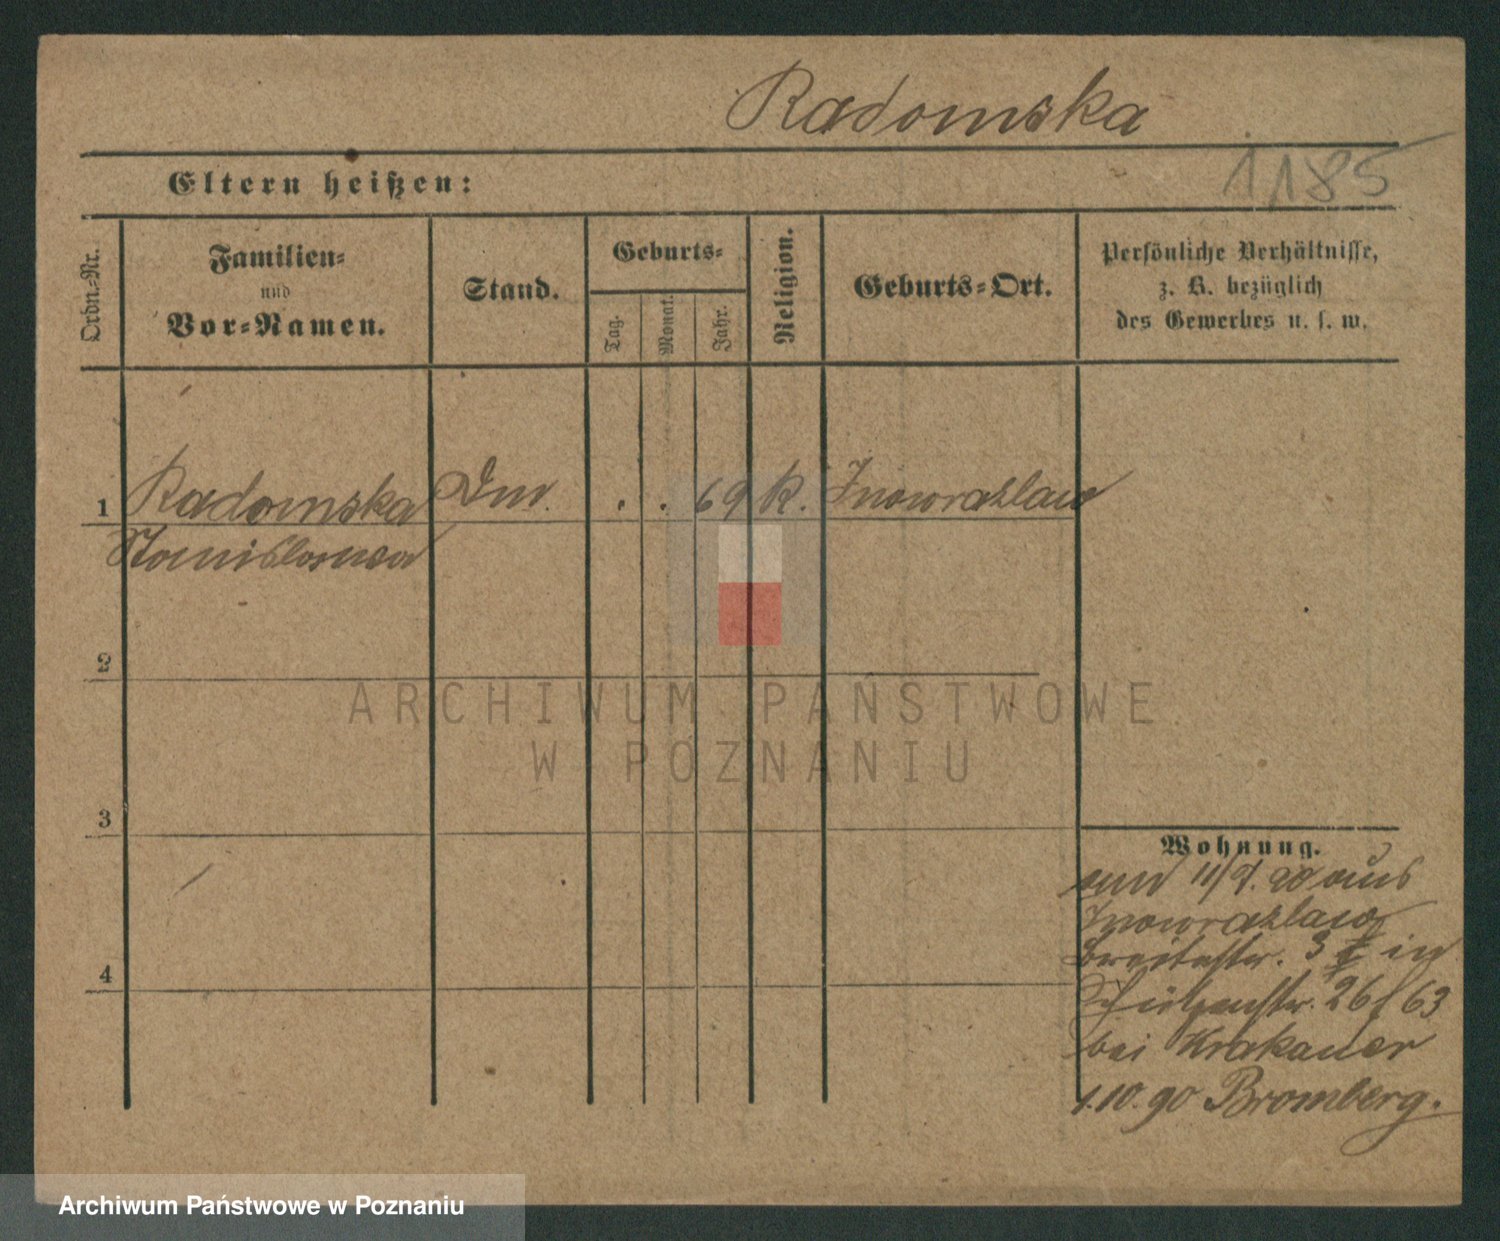 Radomska
1185
Eltern heißen:
Ordn.-Nr.
Familien-
und
Vor-Namen.
Stand.
Geburts-
Tag.
Monat.
Jahr.
Religion.
Geburts-Ort.
Persönliche Verhältnisse,
z. B. bezüglich
des Gewerbes u. s. w.
1 Radomska . . 69 K. Inowrazlaw
Stanislawa
2
ARCHIWUM PAŃSTWOWE
W POZNANIU
3
Wohnung.
11/9. 90 aus
Inowrazlaw
Breitestr. 3 in
4
Schützenstr. 26 63
bei Krakauer
1.10.90 Bromberg.
Archiwum Państwowe w Poznaniu